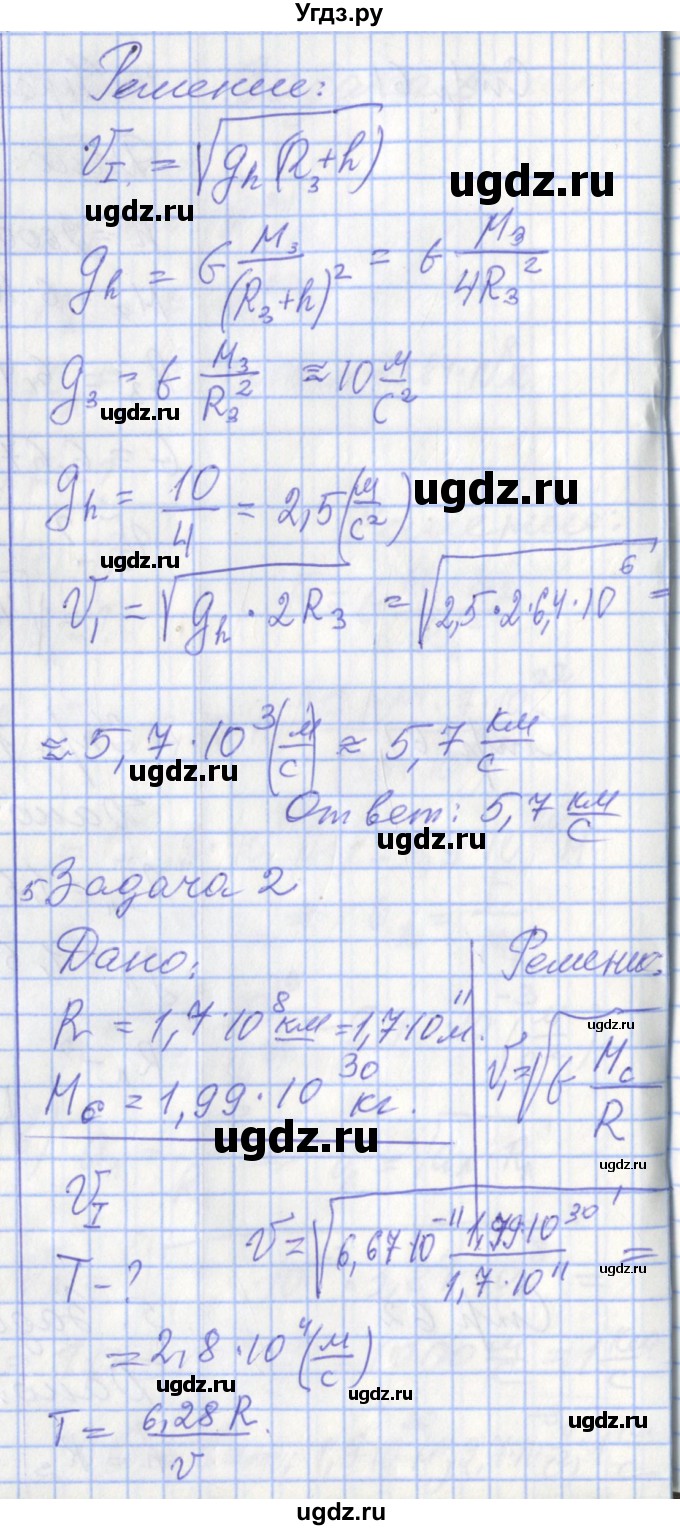 Угдз.ру
Решение:
V_I = √(g_h (R_З+h))
ugdz.ru
ugdz.ru
g_h = G M_З/(R_З+h)² = G M_З/4R_З²
g_З = G M_З/R_З² ≈ 10 м/с²
ugdz.ru
g_h = 10/4 = 2,5 (м/с²)
ugdz.ru
ugdz.ru
V_1 = √(g_h · 2R_З) = √(2,5·2·6,4·10⁶) =
≈ 5,7·10³ (м/с) ≈ 5,7 км/с
ugdz.ru
Ответ: 5,7 км/с
ugdz.ru
5 Задача 2
Дано:
Решение:
R = 1,7·10⁸ км = 1,7·10¹¹ м.
ugdz.ru
V_1 = √(G M_c/R)
M_c = 1,99·10³⁰ кг.
ugdz.ru
ugdz.ru
V_I
V = √(6,67·10⁻¹¹ 1,99·10³⁰/1,7·10¹¹) =
T - ?
ugdz.ru
= 2,8·10⁴ (м/с)
ugdz.ru
ugdz.ru
T = 6,28 R/V.
ugdz.ru
ugdz.ru